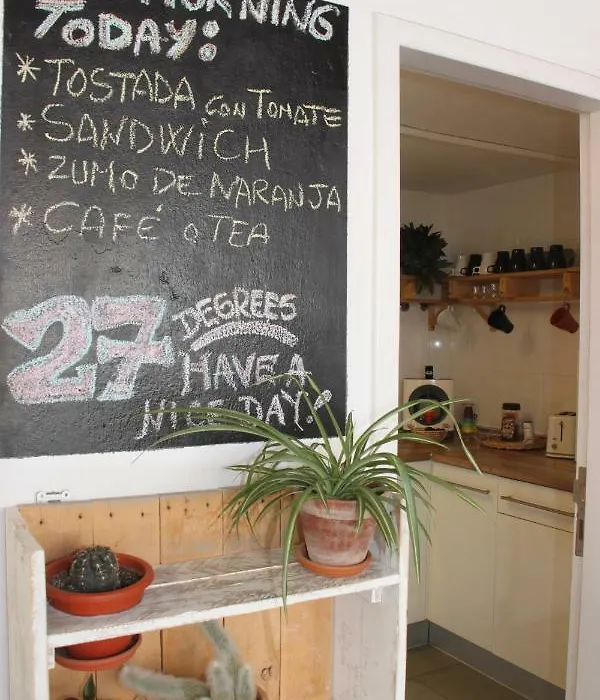 MORNING
TODAY:
* TOSTADA CON TOMATE
* SANDWICH
* ZUMO DE NARANJA
* CAFÉ O TEA
27 DEGREES
HAVE A
NICE DAY!